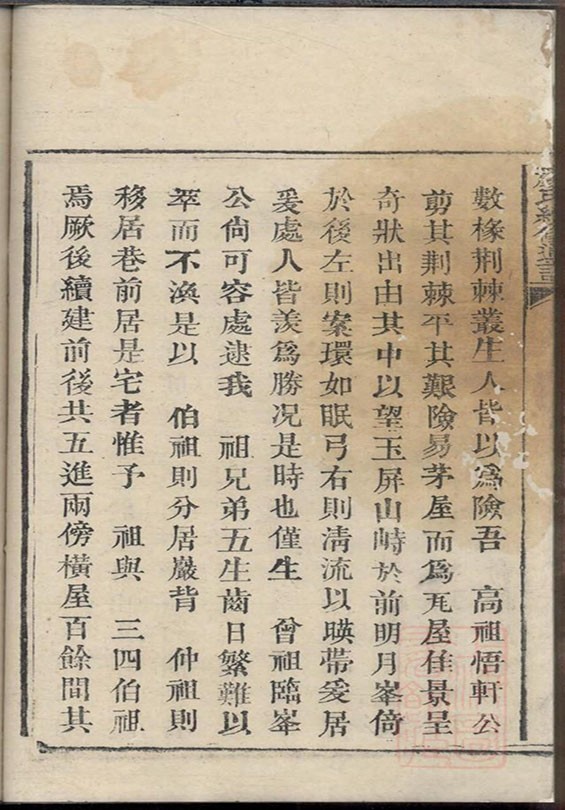 數椽荆棘叢生人皆以爲險吾　高祖悟軒公
剪其荆棘平其艱險易茅屋而爲瓦屋佳景呈
奇狀出由其中以望玉屏山峙於前明月峯倚
於後左則案環如眠弓右則淸流以暎帶爰居
爰處人皆羡爲勝况是時也僅生　曾祖臨峯
公尙可容處逮我　祖兄弟五生齒日繁難以
萃而不渙是以　伯祖則分居巖背　仲祖則
移居巷前居是宅者惟予　祖與　三四伯祖
焉厥後續建前後共五進兩傍橫屋百餘間其